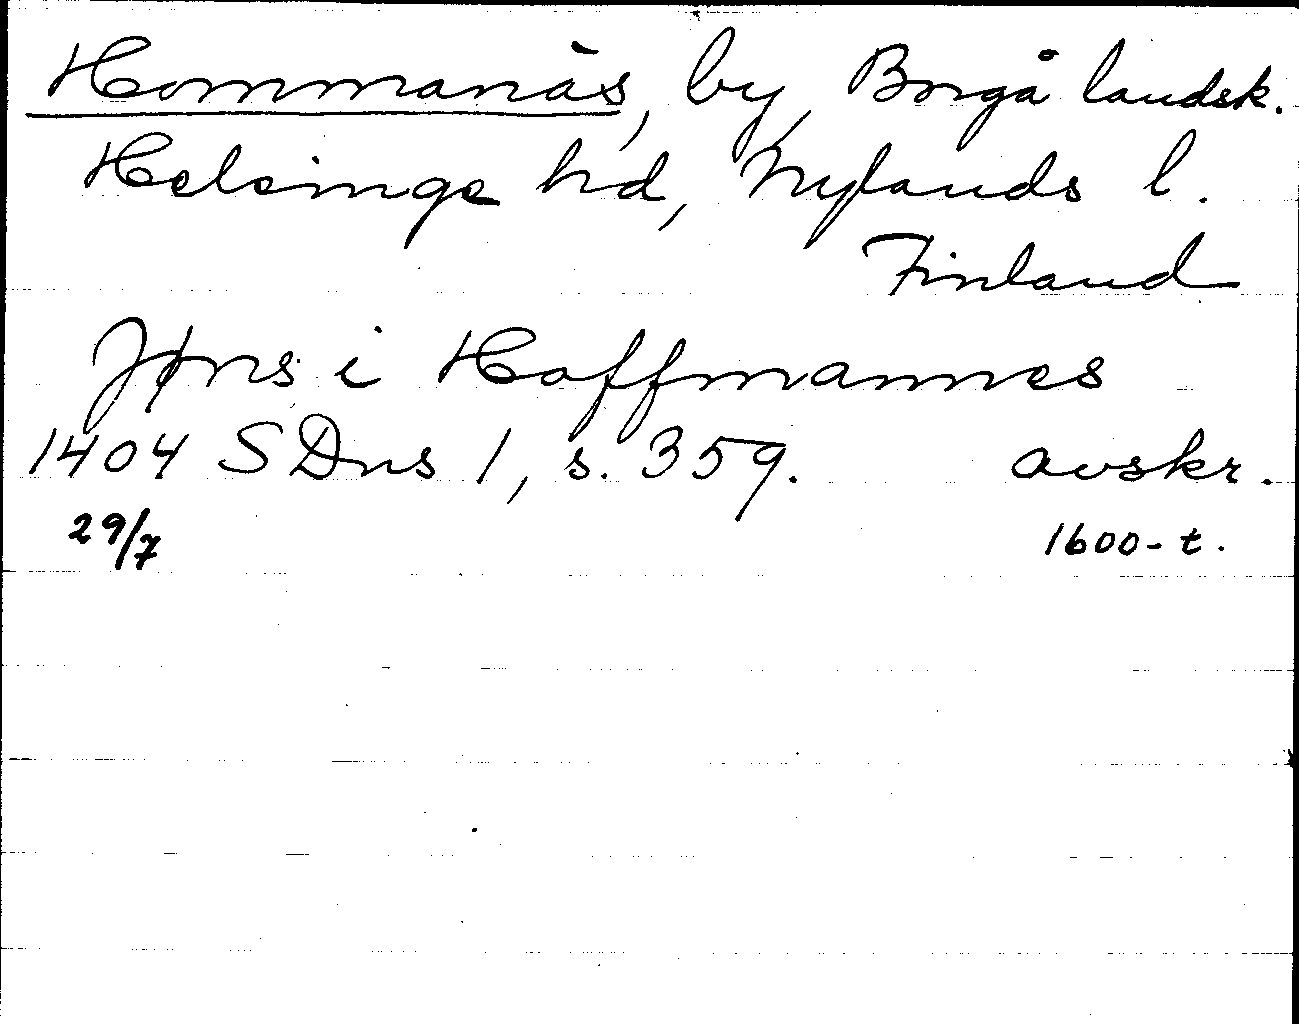 Hommanäs, by, Borgå landsk.
Helsinge hd, Nylands l.
Finland
Jøns i Hoffmannes
1404 SDns 1, s. 359. avskr.
29/7 1600-t.